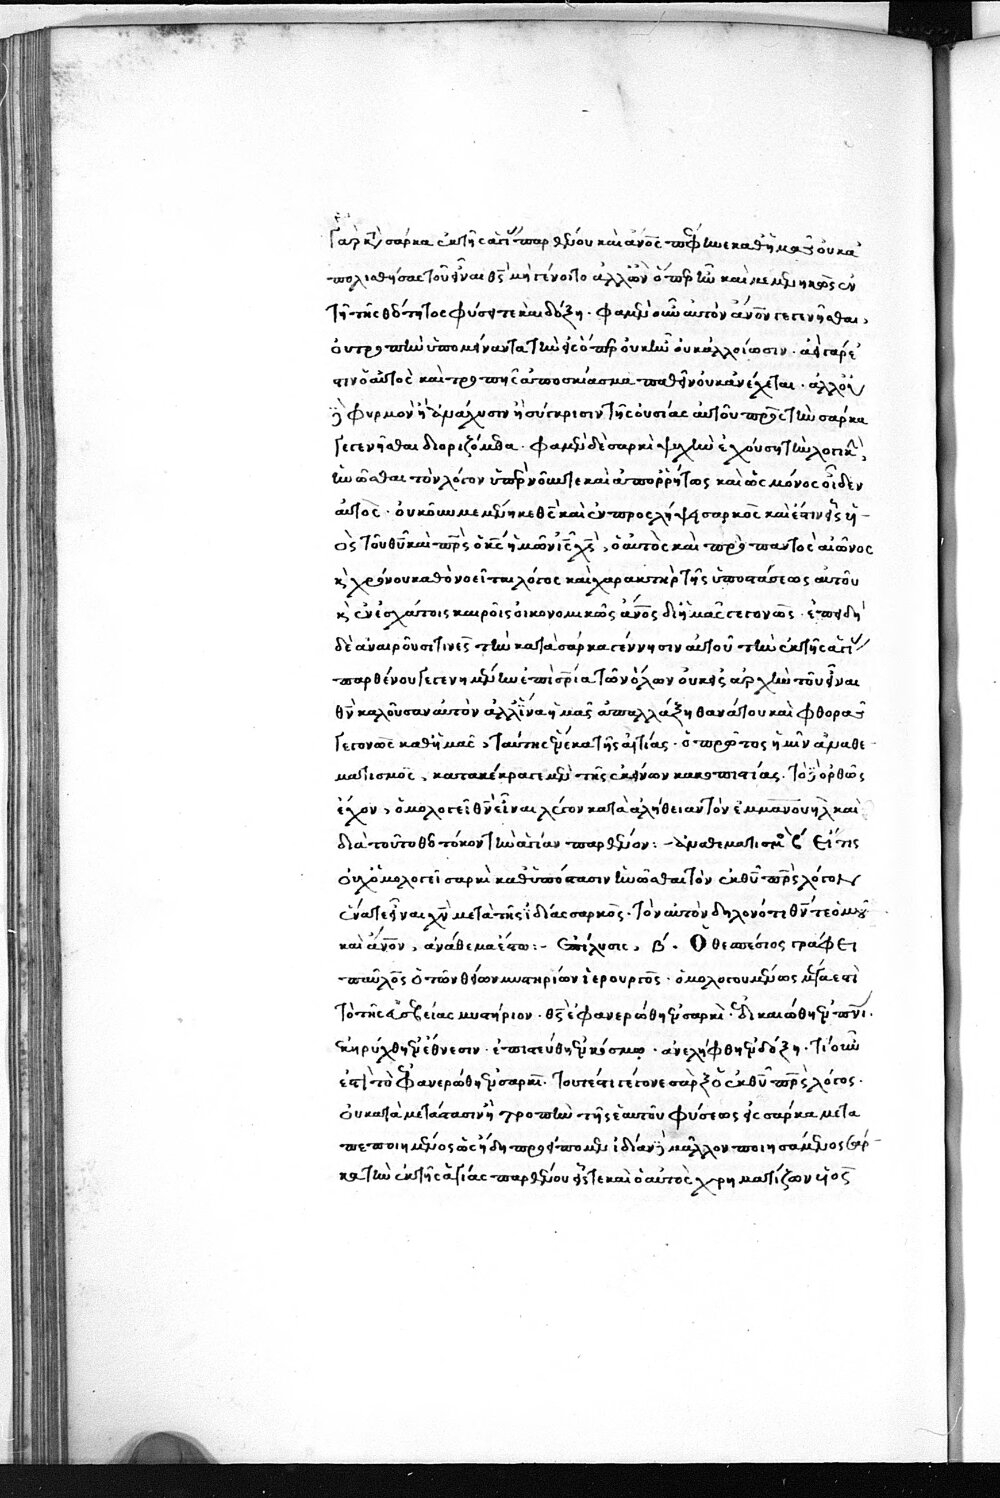 γὰρ κατὰ σάρκα ἐκ τῆς ἁγί παρθένου καὶ ἄνος πέφηνε καθ' ἡμᾶς οὐκ ἀ
πολισθήσας τοῦ εἶναι θς μὴ γένοιτο ἀλλ' ὢν ὅπερ ἦν καὶ μεμενηκὼς ἐν
τῇ τῆς θεότητος φύσει τε καὶ δόξῃ · φαμὲν οὖν αὐτὸν ἄνον γεγενῆσθαι,
οὐ τροπὴν ὑπομείναντα τὴν εἰς ὅπερ οὐκ ἦν οὐκ ἀλλοίωσιν · ἀεὶ γάρ ἐ
στιν ὁ αὐτὸς καὶ τροπῆς ἀποσκίασμα παθεῖν οὐκ ἀνέχεται · ἀλλ' οὐ
ἢ φυρμὸν ἢ ἀνάχυσιν ἢ σύγκρισιν τῆς οὐσίας αὐτοῦ πρὸς τὴν σάρκα
γεγενῆσθαι διοριζόμεθα · φαμὲν δὲ σαρκὶ ψυχὴν ἐχούσῃ τὴν λογικὴν,
ἡνῶσθαι τὸν λόγον ὑπὲρ νοῦν τε καὶ ἀπορρήτως καὶ ὡς μόνος οἶδεν
αὐτὸς · οὐκοῦν μεμένηκε θς καὶ ἐν προσλήψει σαρκὸς καὶ ἔστιν εἷς υἱ
ὸς τοῦ θυ καὶ πρς ὁ κς ἡμῶν ις χς, ὁ αὐτὸς καὶ πρὸ παντὸς αἰῶνος
κ χρόνου καθὸ νοεῖται λόγος καὶ χαρακτὴρ τῆς ὑποστάσεως αὐτοῦ
κ ἐν ἐσχάτοις καιροῖς οἰκονομικῶς ἄνος δι' ἡμᾶς γεγονὼς · ἐπειδὴ
δὲ ἀναιροῦσι τινὲς τὴν κατὰ σάρκα γέννησιν αὐτοῦ τὴν ἐκ τῆς ἁγί
παρθένου γεγενημένην ἐπὶ σρία τῶν ὅλων οὐκ εἰς ἀρχὴν τοῦ εἶναι
θν καλοῦσαν αὐτὸν ἀλλ' ἵνα ἡμᾶς ἀπαλλάξῃ θανάτου καὶ φθορᾶς
γεγονὼς καθ' ἡμᾶς, ταύτης ἕνεκα τῆς αἰτίας · ὁ πρῶτος ἡμῖν ἀναθε
ματισμὸς, κατακέκραγε μὲν τῆς ἐκείνων κακοπιστίας, τὸ δὲ ὀρθῶς
ἔχον, ὁμολογεῖ θν εἶναι λέγον κατὰ ἀλήθειαν τὸν ἐμμανουὴλ καὶ
διὰ τοῦτο θεοτόκον τὴν ἁγίαν παρθένον: - ἀναθεματισμὸς β Εἴ τις
οὐχ ὁμολογεῖ σαρκὶ καθ' ὑπόστασιν ἡνῶσθαι τὸν ἐκ θυ πρς λόγον
ἕνα τε εἶναι χν μετὰ τῆς ἰδίας σαρκὸς · τὸν αὐτὸν δηλονότι θν τε ὁμοῦ
καὶ ἄνον, ἀνάθεμα ἔστω: - Ἐπίλυσις, β · Ὁ θεσπέσιος γράφει
παῦλος ὁ τῶν θείων μυστηρίων ἱερουργὸς · ὁμολογουμένως μέγα ἐστὶ
τὸ τῆς εὐσεβείας μυστήριον · θς ἐφανερώθη ἐν σαρκὶ · ἐδικαιώθη ἐν πνι ·
ἐκηρύχθη ἐν ἔθνεσιν · ἐπιστεύθη ἐν κόσμῳ · ἀνελήφθη ἐν δόξῃ · τί οὖν
ἐστὶ τὸ ἐφανερώθη ἐν σαρκὶ · τουτέστι γέγονε σὰρξ ὁ ἐκ θυ πρς λόγος ·
οὐ κατὰ μετάστασιν ἢ τροπὴν τῆς ἑαυτοῦ φύσεως εἰς σάρκα μετα
πεποιημένος ὡς ἤδη προείπομεν ἰδίαν δὲ μᾶλλον ποιησάμενος σάρ
κα τὴν ἐκ τῆς ἁγίας παρθένου εἷς τε καὶ ὁ αὐτὸς χρηματίζων υἱὸς